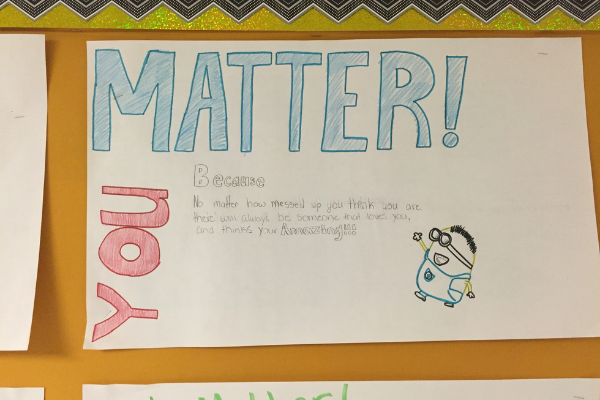 YOU
MATTER!
Because
No matter how messed up you think you are
there will always be someone that loves you,
and thinks your
Matter!